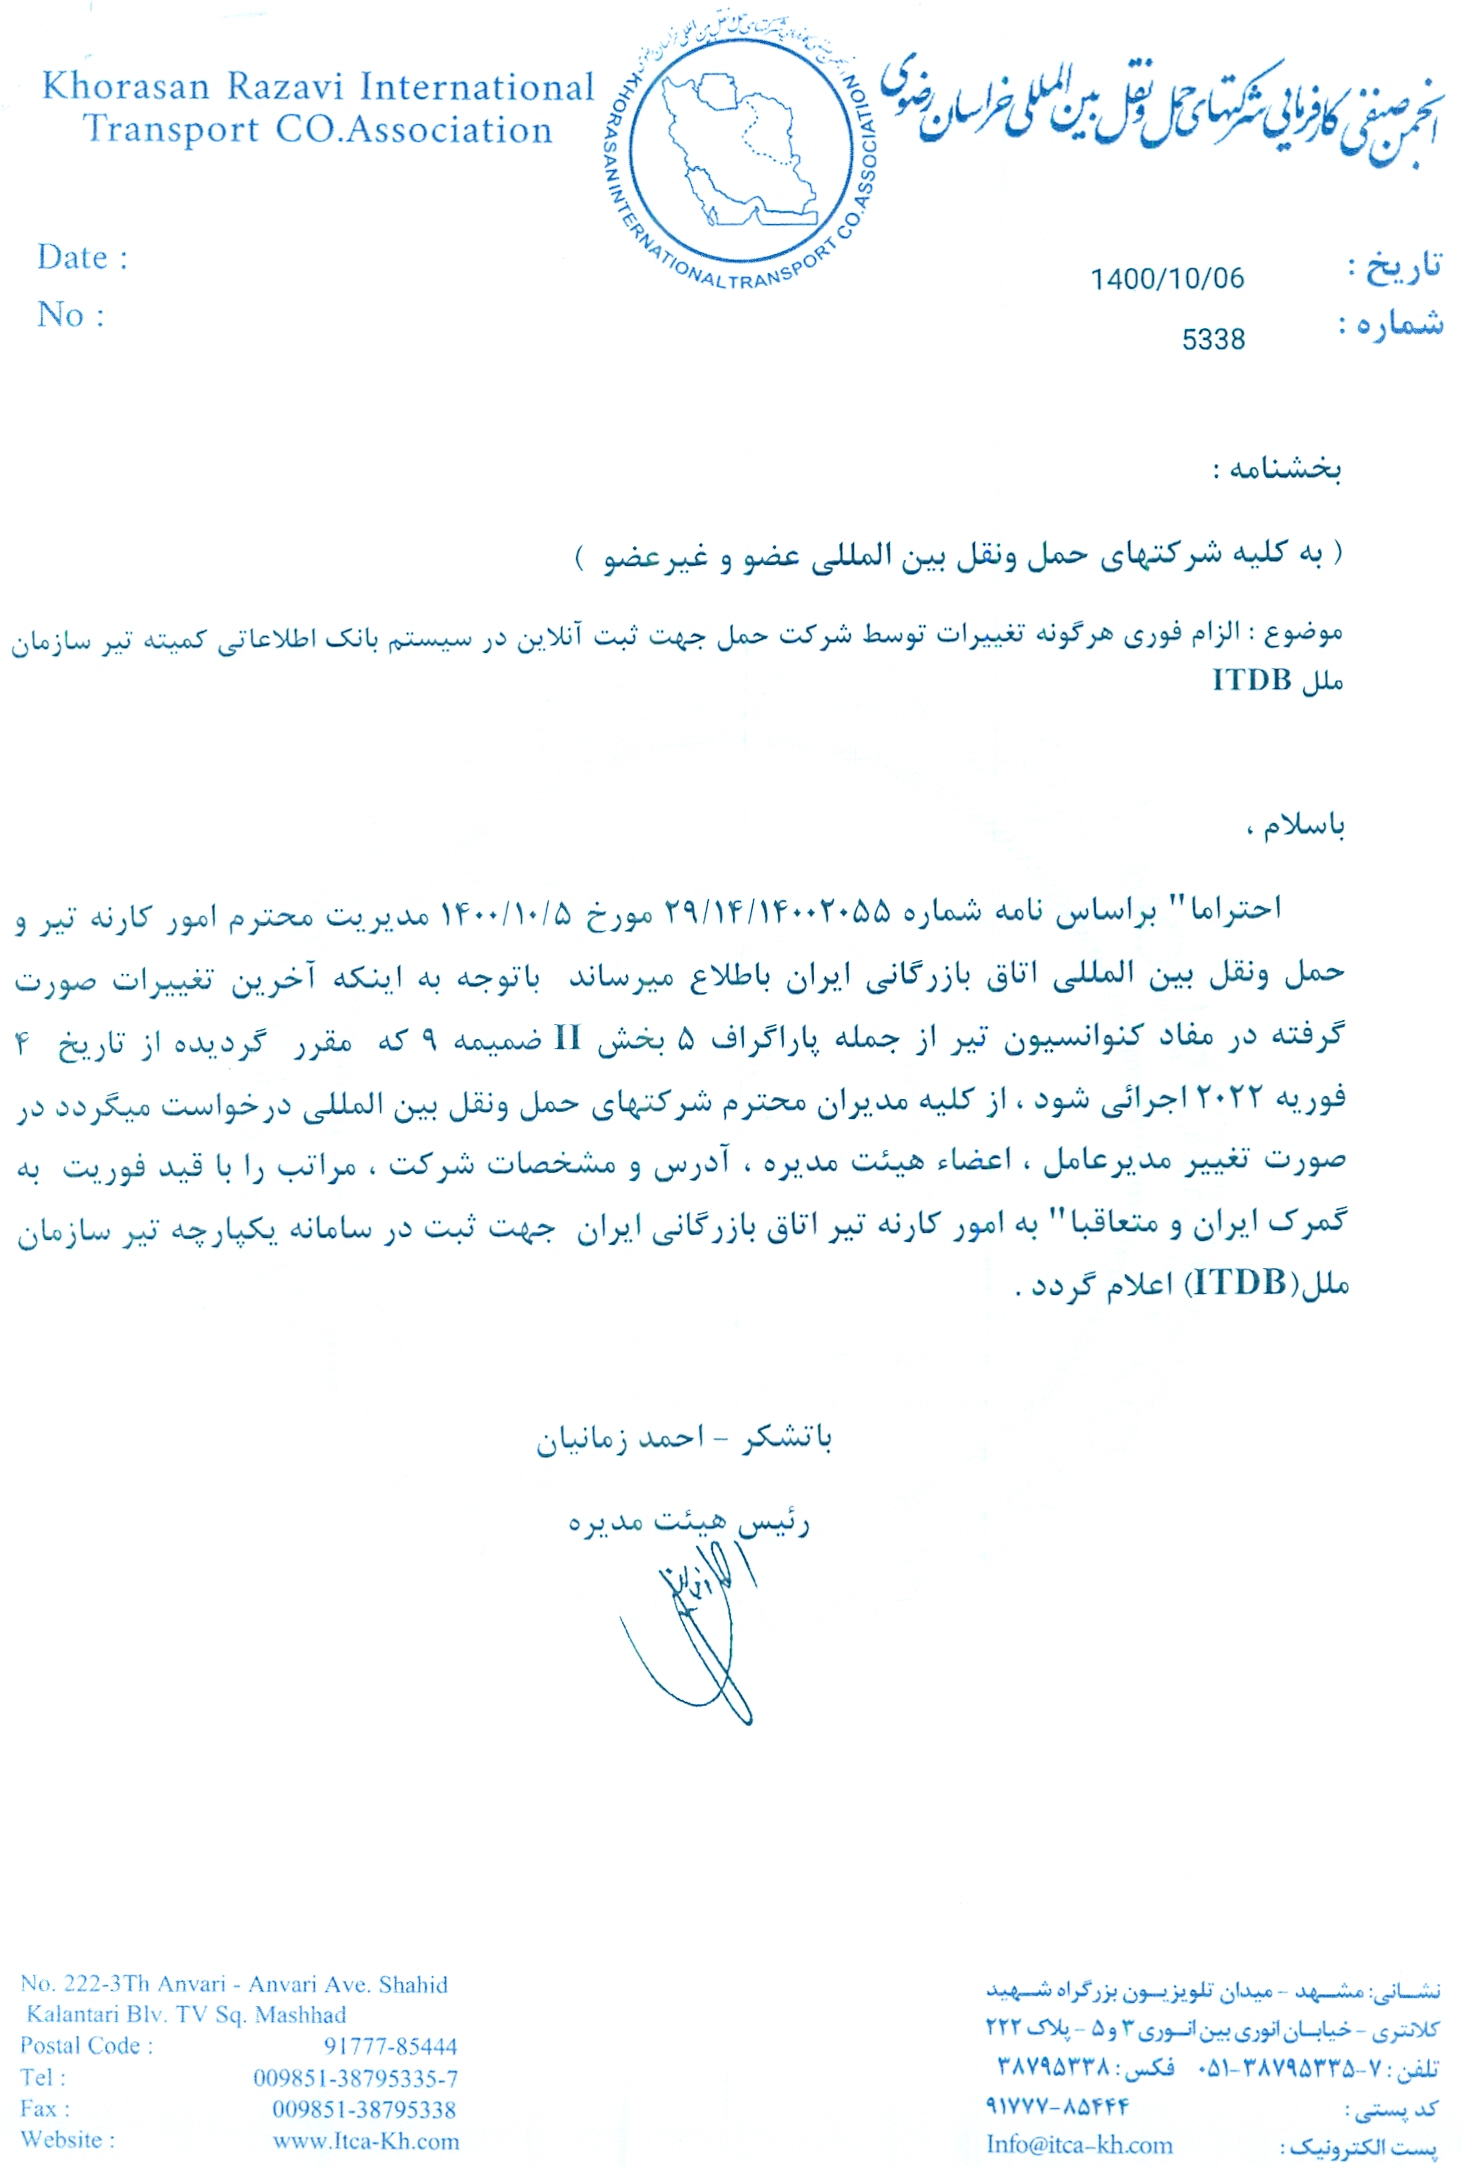 Khorasan Razavi International
Transport CO.Association
انجمن صنفی کارفرمایی شرکتهای حمل و نقل بین المللی خراسان رضوی
KHORASAN INTERNATIONAL TRANSPORT CO.ASSOCIATION
Date :
No :
تاریخ : 1400/10/06
شماره : 5338
بخشنامه :
( به کلیه شرکتهای حمل ونقل بین المللی عضو و غیرعضو )
موضوع : الزام فوری هرگونه تغییرات توسط شرکت حمل جهت ثبت آنلاین در سیستم بانک اطلاعاتی کمیته تیر سازمان
ملل ITDB
باسلام ،
احتراما" براساس نامه شماره ۲۹/۱۴/۱۴۰۰۲۰۵۵ مورخ ۱۴۰۰/۱۰/۵ مدیریت محترم امور کارنه تیر و
حمل ونقل بین المللی اتاق بازرگانی ایران باطلاع میرساند باتوجه به اینکه آخرین تغییرات صورت
گرفته در مفاد کنوانسیون تیر از جمله پاراگراف ۵ بخش II ضمیمه ۹ که مقرر گردیده از تاریخ ۴
فوریه ۲۰۲۲ اجرائی شود ، از کلیه مدیران محترم شرکتهای حمل ونقل بین المللی درخواست میگردد در
صورت تغییر مدیرعامل ، اعضاء هیئت مدیره ، آدرس و مشخصات شرکت ، مراتب را با قید فوریت به
گمرک ایران و متعاقبا" به امور کارنه تیر اتاق بازرگانی ایران جهت ثبت در سامانه یکپارچه تیر سازمان
ملل(ITDB) اعلام گردد .
باتشکر - احمد زمانیان
رئیس هیئت مدیره
No. 222-3Th Anvari - Anvari Ave. Shahid
Kalantari Blv. TV Sq. Mashhad
Postal Code : 91777-85444
Tel : 009851-38795335-7
Fax : 009851-38795338
Website : www.Itca-Kh.com
نشـــانی: مشـــهد - میدان تلویزیـــون بزرگراه شـــهید
کلانتری - خیابـان انوری بین انـوری ۳ و ۵ - پلاک ۲۲۲
تلفن : ۷-۳۸۷۹۵۳۳۵-۰۵۱ فکس : ۳۸۷۹۵۳۳۸
کد پستی : ۹۱۷۷۷-۸۵۴۴۴
پست الکترونیک : Info@itca-kh.com